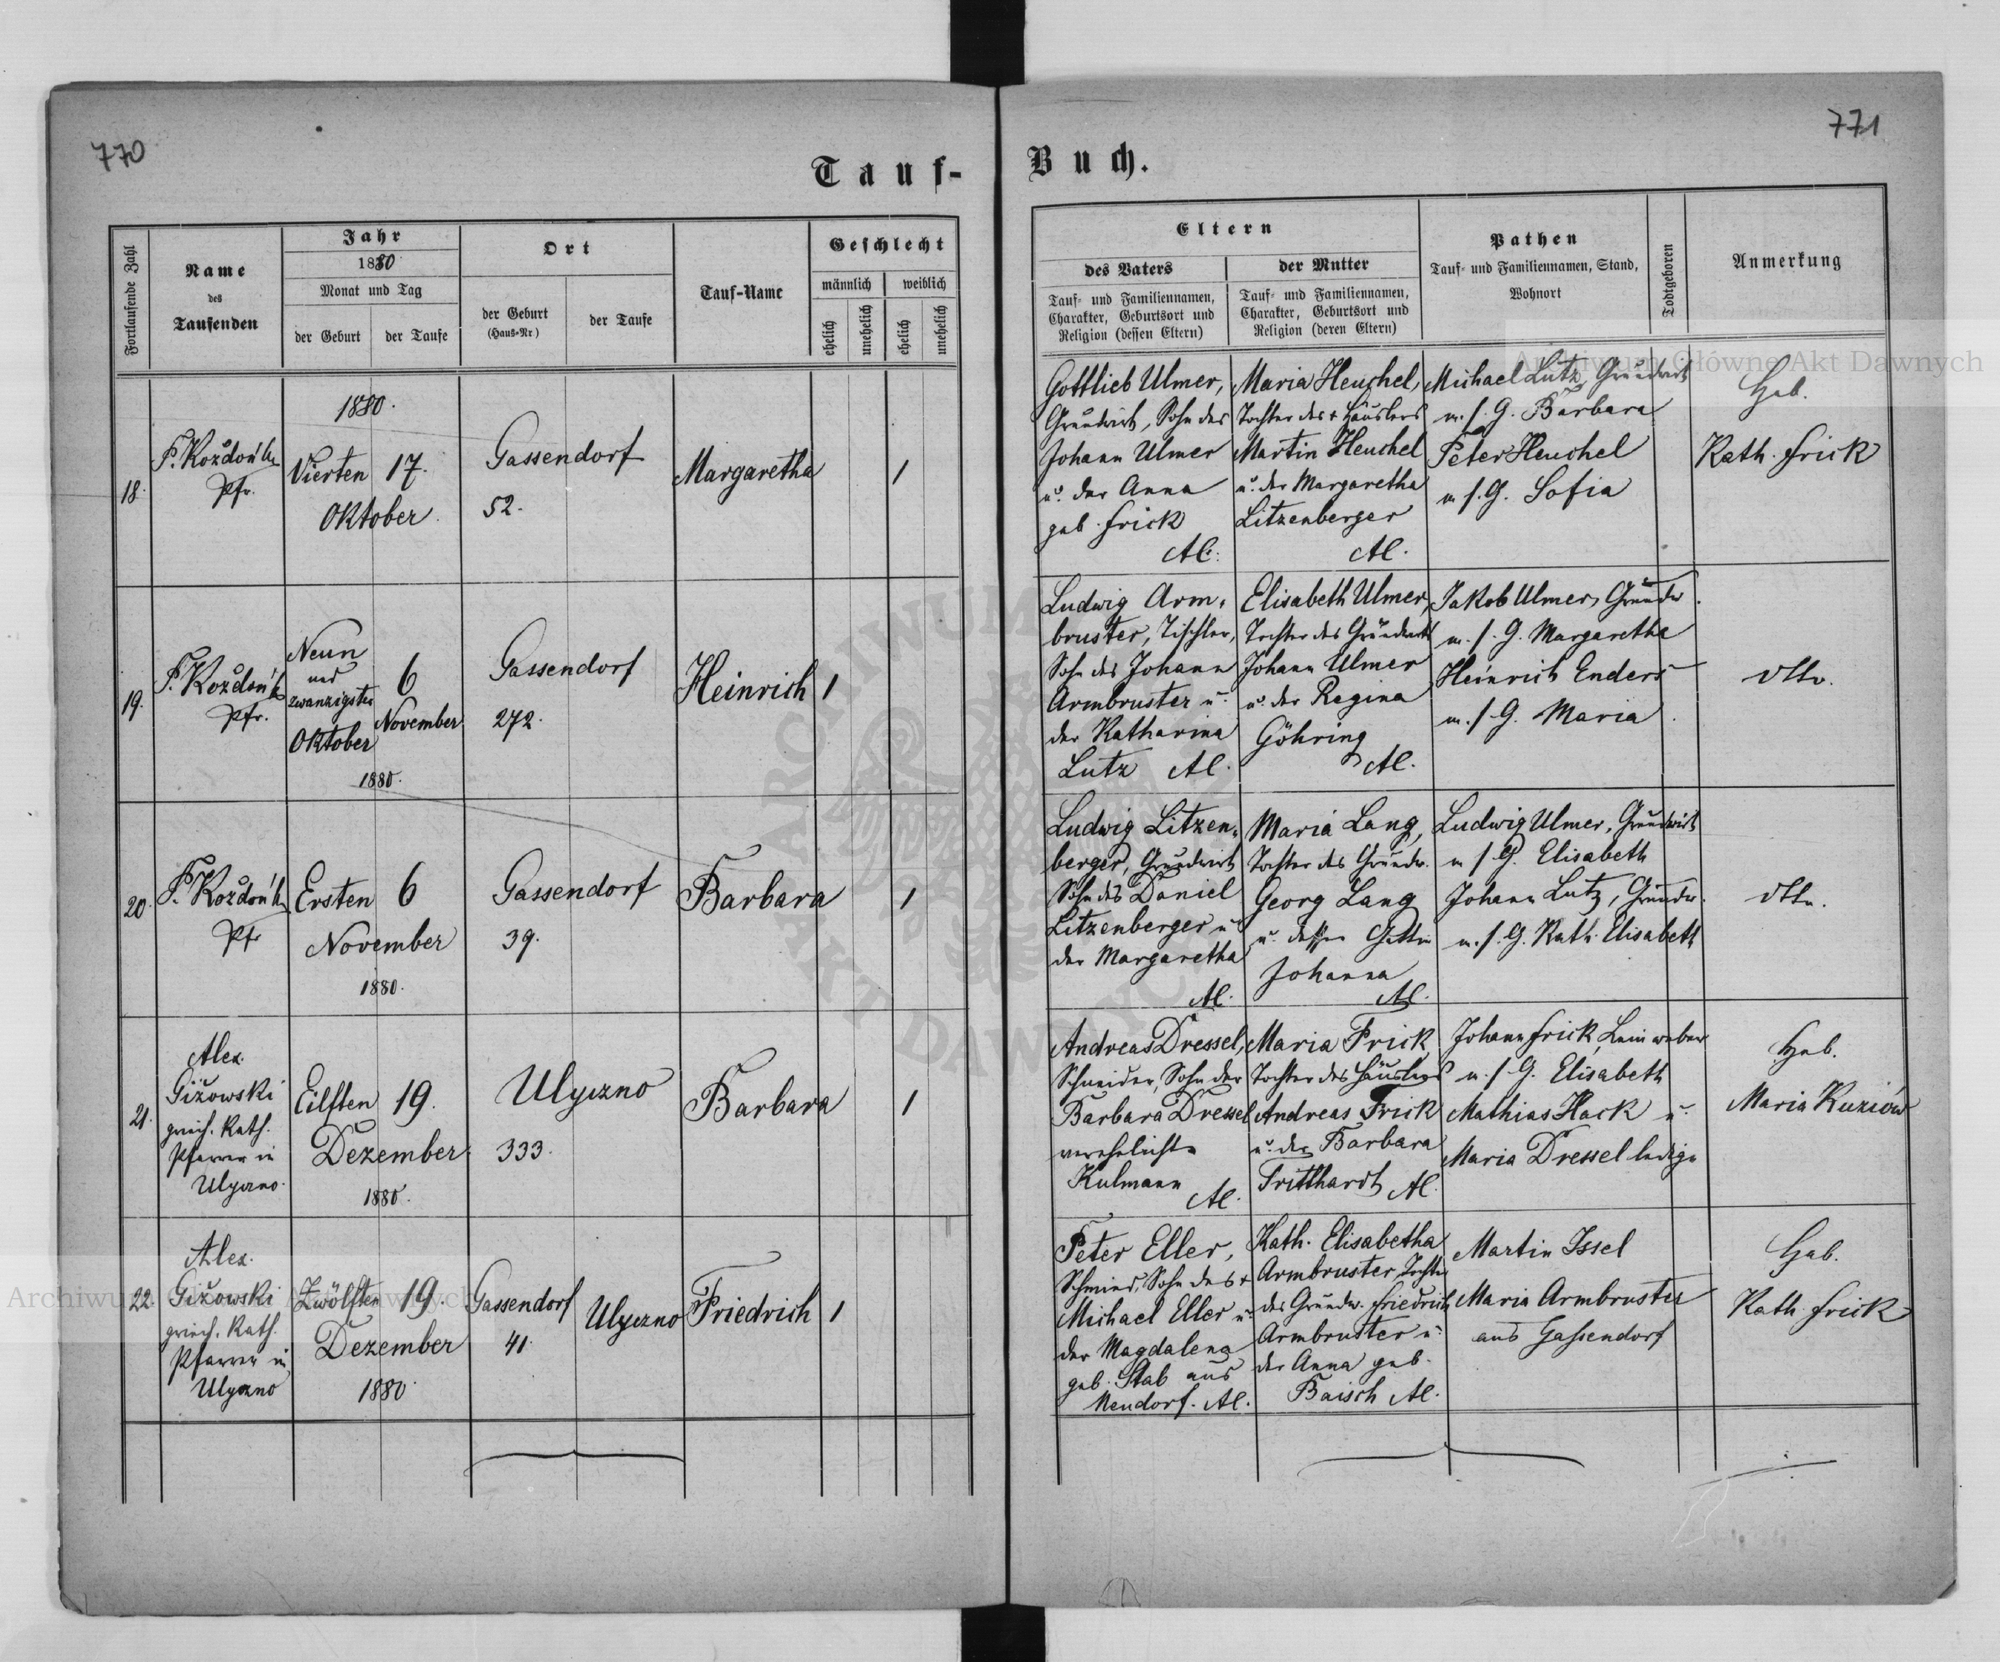 770
771
Tauf-
Buch.
Fortlaufende Zahl
Name
des
Taufenden
Jahr
1880
Monat und Tag
der Geburt
der Taufe
Ort
der Geburt
(Haus-Nr)
der Taufe
Tauf-Name
Geschlecht
männlich
weiblich
ehelich
unehelich
ehelich
unehelich
Eltern
des Vaters
Tauf- und Familiennamen,
Charakter, Geburtsort und
Religion (dessen Eltern)
der Mutter
Tauf- und Familiennamen,
Charakter, Geburtsort und
Religion (deren Eltern)
Pathen
Tauf- und Familiennamen, Stand,
Wohnort
Todtgeboren
Anmerkung
18.
Pfr.
1880.
Vierten 17.
Oktober.
Gassendorf
52.
Margaretha
1
Gottlieb Ulmer,
Grundwirt, Sohn des
Johann Ulmer
u. der Anna
geb. Frick
AC.
Maria Heuchel,
Tochter des + Häuslers
Martin Heuchel
u. der Margaretha
Litzenberger
AC.
Michael Lutz, Grundwirt
m. s. G. Barbara
Peter Heuchel
m. s. G. Sofia
Heb.
Kath. Frick
19.
Pfr.
Neun
und
zwanzigsten
Oktober
6
November
1880.
Gassendorf
272.
Heinrich
1
Ludwig Arm-
bruster, Tischler,
Sohn des Johann
Armbruster u.
der Katharina
Lutz AC.
Elisabeth Ulmer,
Tochter des Grundwirts
Johann Ulmer
u. der Regina
Göhring
AC.
Jakob Ulmer, Grundw.
m. s. G. Margaretha
Heinrich Enders
m. s. G. Maria
dtto.
20.
Pfr
Ersten 6
November
1880.
Gassendorf
39.
Barbara
1
Ludwig Litzen-
berger, Grundwirt
Sohn des Daniel
Litzenberger u
der Margaretha
AC.
Maria Lang,
Tochter des Grundw.
Georg Lang
u. dessen Gattin
Johanna
AC.
Ludwig Ulmer, Grundwirt
m s. G. Elisabeth
Johann Lutz, Grundw.
m. s. G. Kath. Elisabeth
dtto.
21.
Alex.
Giżowski
griech. Kath.
Pfarrer in
Ulyczno.
Eilften 19.
Dezember
1880.
Ulyczno
333.
Barbara
1
Andreas Dressel,
Schneider, Sohn der
Barbara Dressel
verehelichte
Kulmann
AC.
Maria Frick
Tochter des Häuslers
Andreas Frick
u. der Barbara
Tritthardt AC.
Johann Frick, Leinweber
m. s. G. Elisabeth
Mathias Hack u.
Maria Dressel ledige
Heb.
Maria Kuziów
22.
Alex.
Giżowski
griech. Kath.
Pfarrer in
Ulyczno
Zwölften 19.
Dezember
1880
Gassendorf
41.
Ulyczno
Friedrich
1
Peter Eller,
Schmied, Sohn des +
Michael Eller u.
der Magdalena
geb. Stab aus
Neudorf. AC.
Kath. Elisabetha
Armbruster Tochter
des Grundw. Friedrich
Armbruster u.
der Anna geb.
Baisch AC.
Martin Issel
Maria Armbruster
aus Gassendorf
Heb.
Kath. Frick
Archiwum Główne Akt Dawnych
ARCHIWUM
AKT DAWNYCH